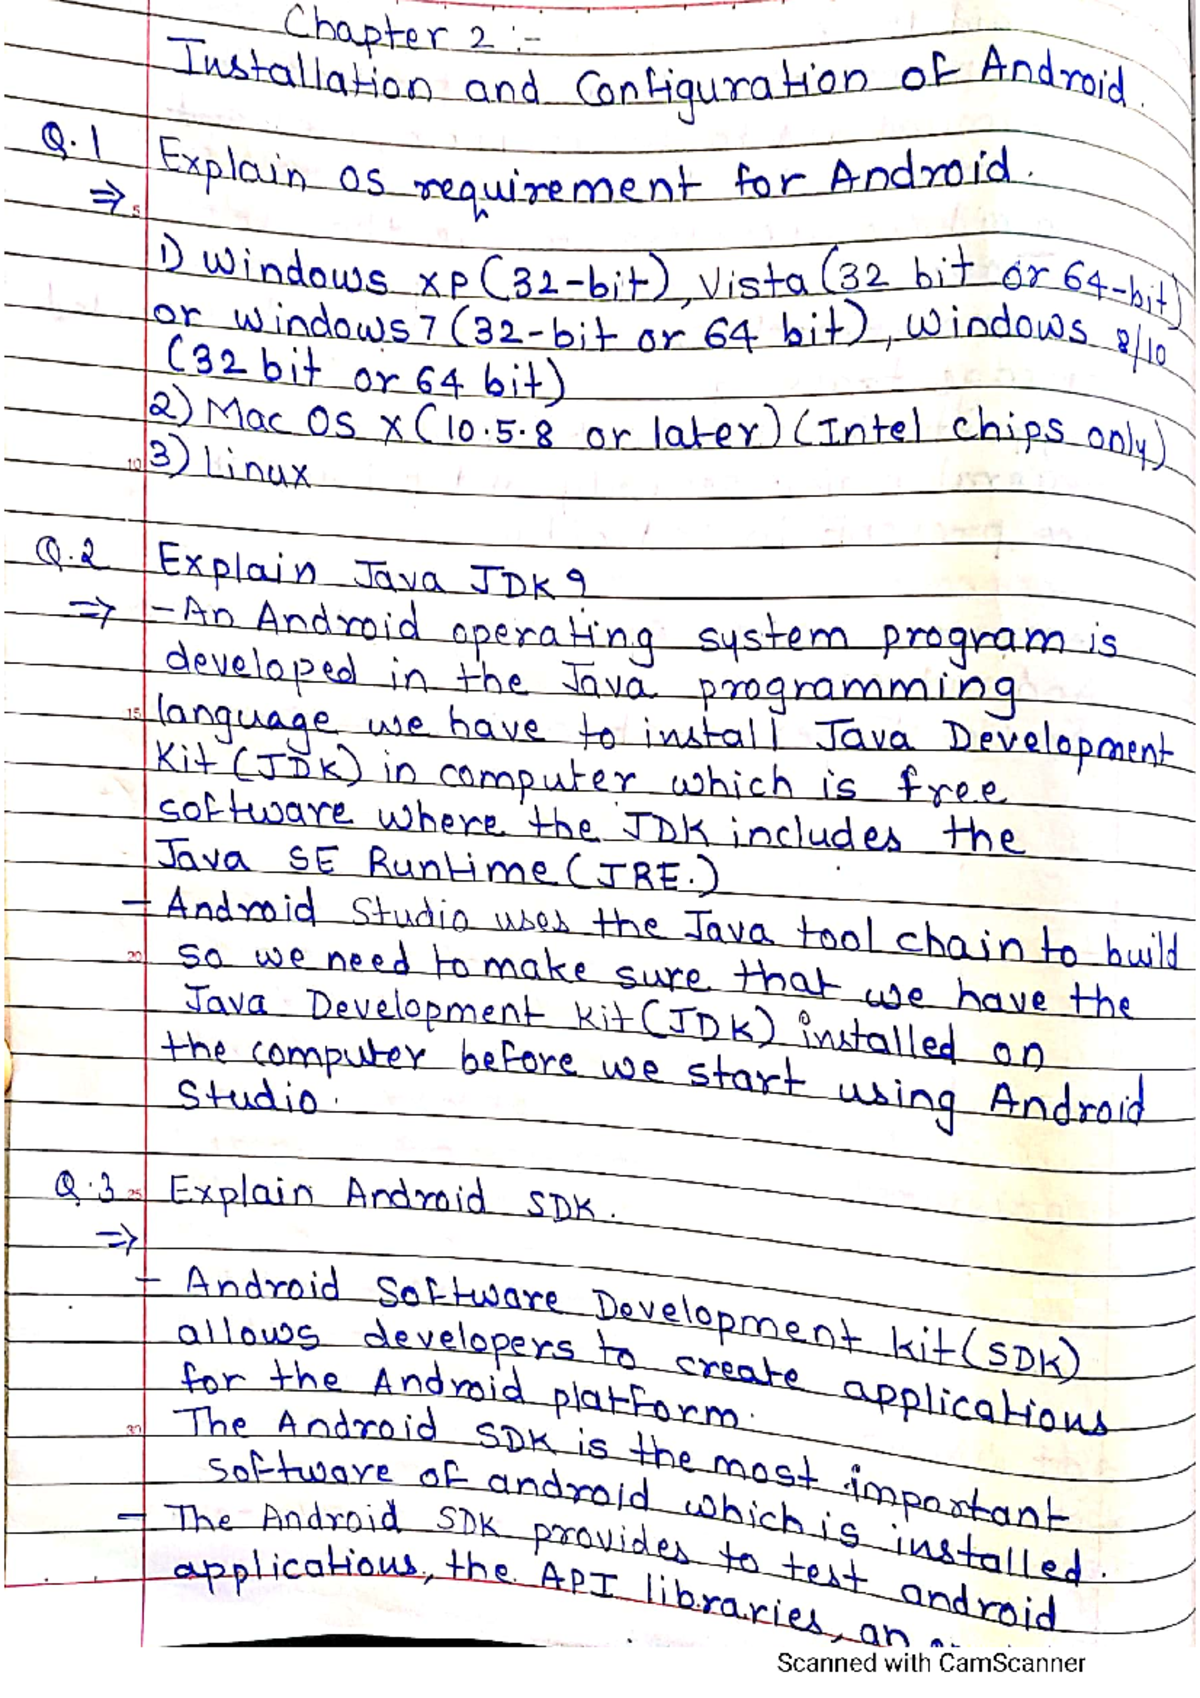 Chapter 2 :-
Installation and Configuration of Android.
Q.1 Explain OS requirement for Android.
⇒
1) Windows XP (32-bit), Vista (32 bit or 64-bit)
or windows 7 (32-bit or 64 bit), windows 8/10
(32 bit or 64 bit)
2) Mac OS X (10.5.8 or later) (Intel chips only)
3) Linux
Q.2 Explain Java JDK?
⇒ - An Android operating system program is
developed in the Java programming
language we have to install Java Development
Kit (JDK) in computer which is free
software where the JDK includes the
Java SE Runtime (JRE.)
- Android Studio uses the Java tool chain to build
so we need to make sure that we have the
Java Development Kit (JDK) installed on
the computer before we start using Android
Studio.
Q.3 Explain Android SDK.
⇒
- Android Software Development kit (SDK)
allows developers to create applications
for the Android platform.
The Android SDK is the most important
software of android which is installed.
- The Android SDK provides to test android
applications, the API libraries, an
Scanned with CamScanner